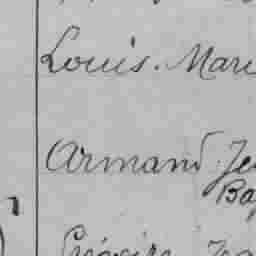 Louis. Marie
Armand. Je
Ba
Grégoire Jea